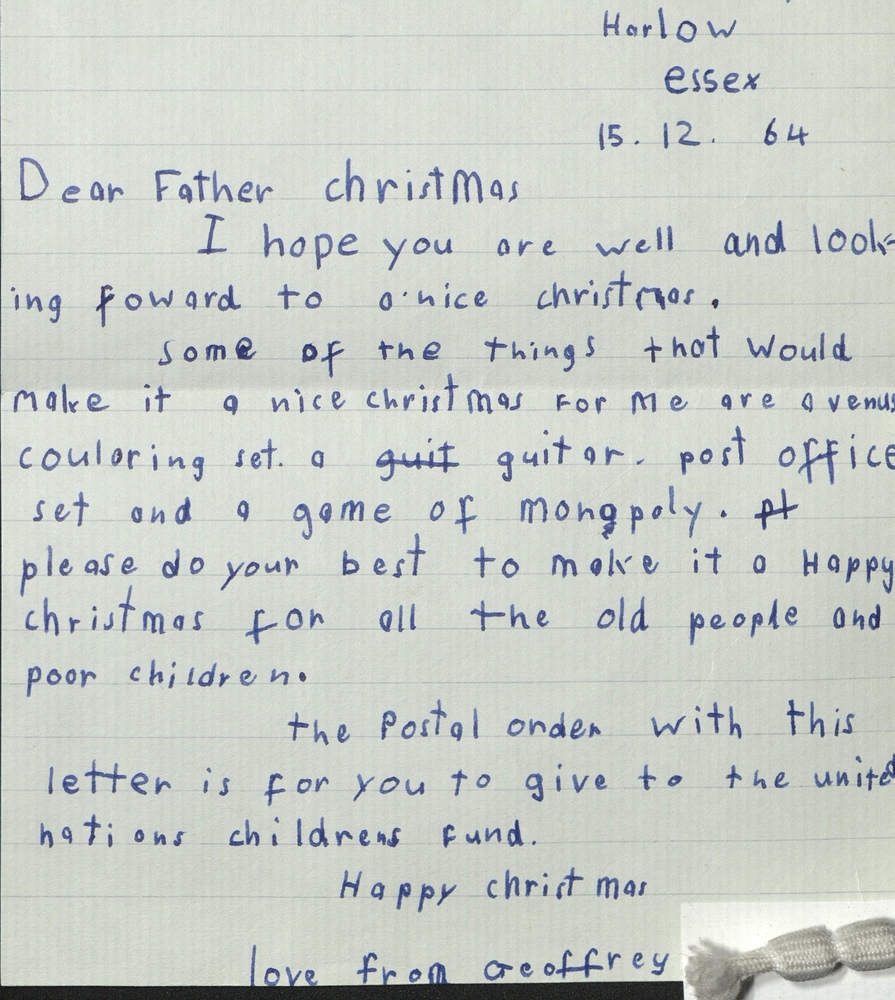 Harlow
essex
15. 12. 64
Dear Father christmas
I hope you are well and look-
ing foward to a nice christmas.
some of the things that would
make it a nice christmas For me are a venus
couloring set. a guit guitar. post office
set and a game of monopoly. pt
please do your best to make it a Happy
christmas for all the old people and
poor children.
the Postal order with this
letter is for you to give to the united
nations childrens fund.
Happy christmas
love from Geoffrey